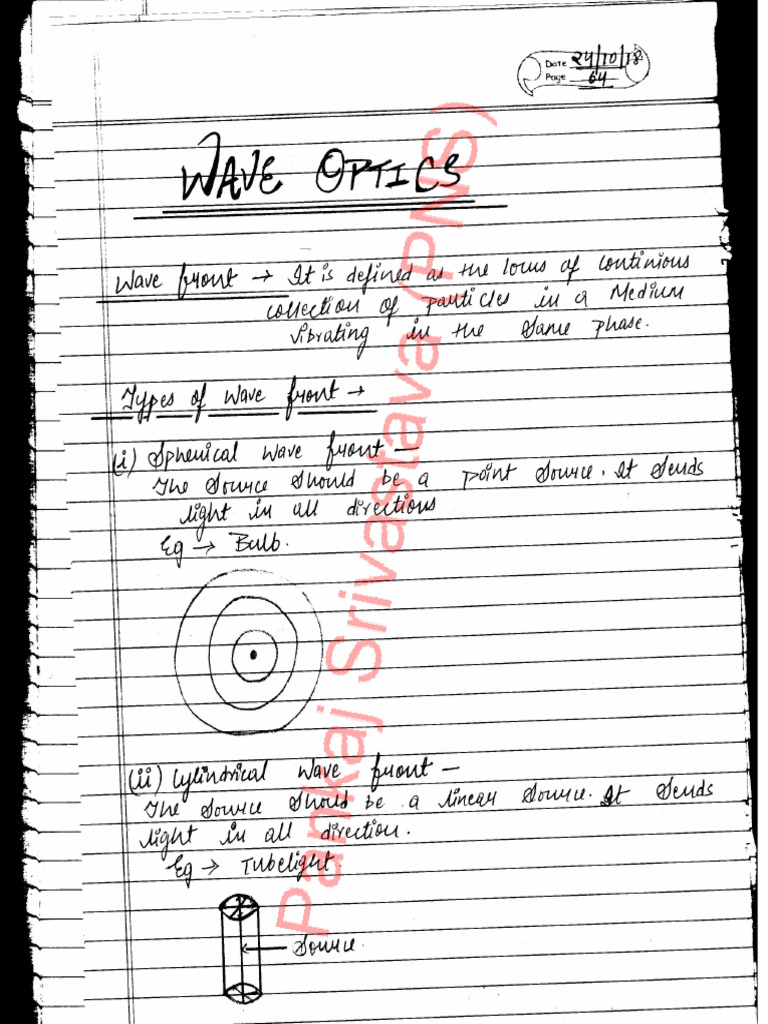 Date 24/10/18
Page 64
WAVE OPTICS
Wave front → It is defined as the locus of continious
collection of particles in a Medium
vibrating in the same phase.
Types of wave front →
(i) Spherical wave front —
The source should be a point source. It sends
light in all directions
Eg → Bulb.
(ii) Cylindrical wave front —
The source should be a linear source. It sends
light in all direction.
Eg → Tubelight.
Source.
Pankaj Srivastava (PMS)